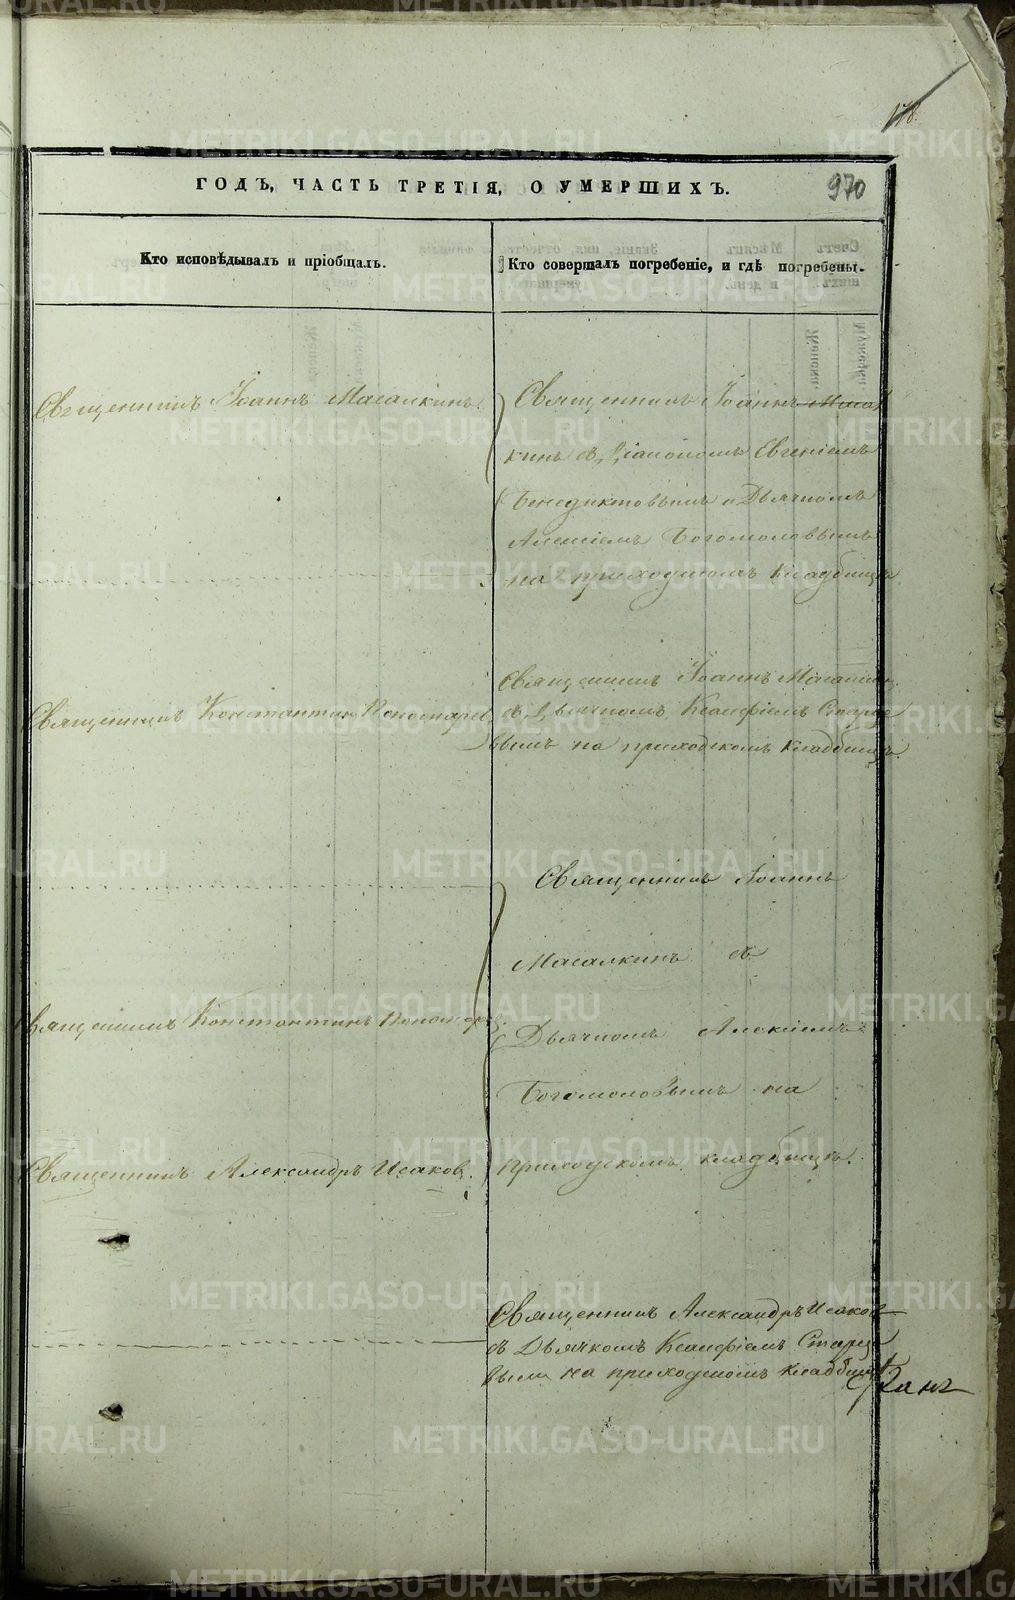 178.
ГОДЪ, ЧАСТЬ ТРЕТІЯ, О УМЕРШИХЪ.
970
Кто исповѣдывалъ и пріобщалъ.
Кто совершалъ погребеніе, и гдѣ погребены.
Священникъ Іоаннъ Масалкинъ.
Священникъ Іоаннъ Масал
кинъ съ Діакономъ Евгеніемъ
Бенедиктовымъ и Дьячкомъ
Алексіемъ Богомоловымъ
на приходскомъ кладбищѣ.
Священникъ Константинъ Пономаревъ
Священникъ Іоаннъ Масалкинъ
съ Дьячкомъ Ксанфіемъ Старце
вымъ на приходскомъ кладбищѣ.
Священникъ Іоаннъ
Масалкинъ съ
Священникъ Константинъ Пономаревъ
Дьячкомъ Алексіемъ
Богомоловымъ на
Священникъ Александръ Исаковъ.
приходскомъ кладбищѣ.
Священникъ Александръ Исаковъ
съ Дьячкомъ Ксанфіемъ Старце
вымъ на приходскомъ кладбищѣ
METRIKI.GASO-URAL.RU